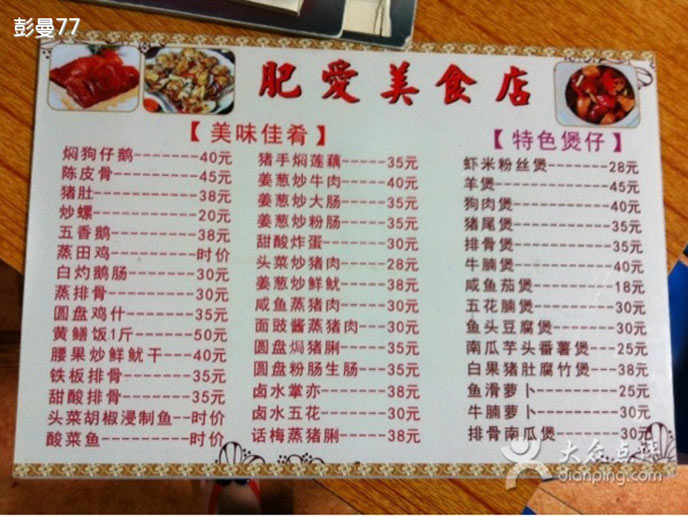 彭曼77
肥愛美食店
【美味佳肴】
焖狗仔鹅-------40元
陈皮骨---------45元
猪肚-----------38元
炒螺-----------20元
五香鹅---------38元
蒸田鸡---------时价
白灼鹅肠-------30元
蒸排骨---------30元
圆盘鸡什-------35元
黄鳝饭1斤------50元
腰果炒鲜鱿干---40元
铁板排骨-------35元
甜酸排骨-------35元
头菜胡椒浸制鱼--时价
酸菜鱼---------时价
猪手焖莲藕-----35元
姜葱炒牛肉-----40元
姜葱炒大肠-----35元
姜葱炒粉肠-----35元
甜酸炸蛋-------30元
头菜炒猪肉-----28元
姜葱炒鲜鱿-----38元
咸鱼蒸猪肉-----30元
面豉酱蒸猪肉---30元
圆盘焗猪脷-----35元
圆盘粉肠生肠---35元
卤水掌亦-------38元
卤水五花-------30元
话梅蒸猪脷-----38元
【特色煲仔】
虾米粉丝煲------28元
羊煲-----------45元
狗肉煲---------40元
猪尾煲---------35元
排骨煲---------35元
牛腩煲---------40元
咸鱼茄煲-------18元
五花腩煲-------30元
鱼头豆腐煲-----30元
南瓜芋头番薯煲--25元
白果猪肚腐竹煲--38元
鱼滑萝卜-------25元
牛腩萝卜-------30元
排骨南瓜煲-----30元
大众点评
dianping.com